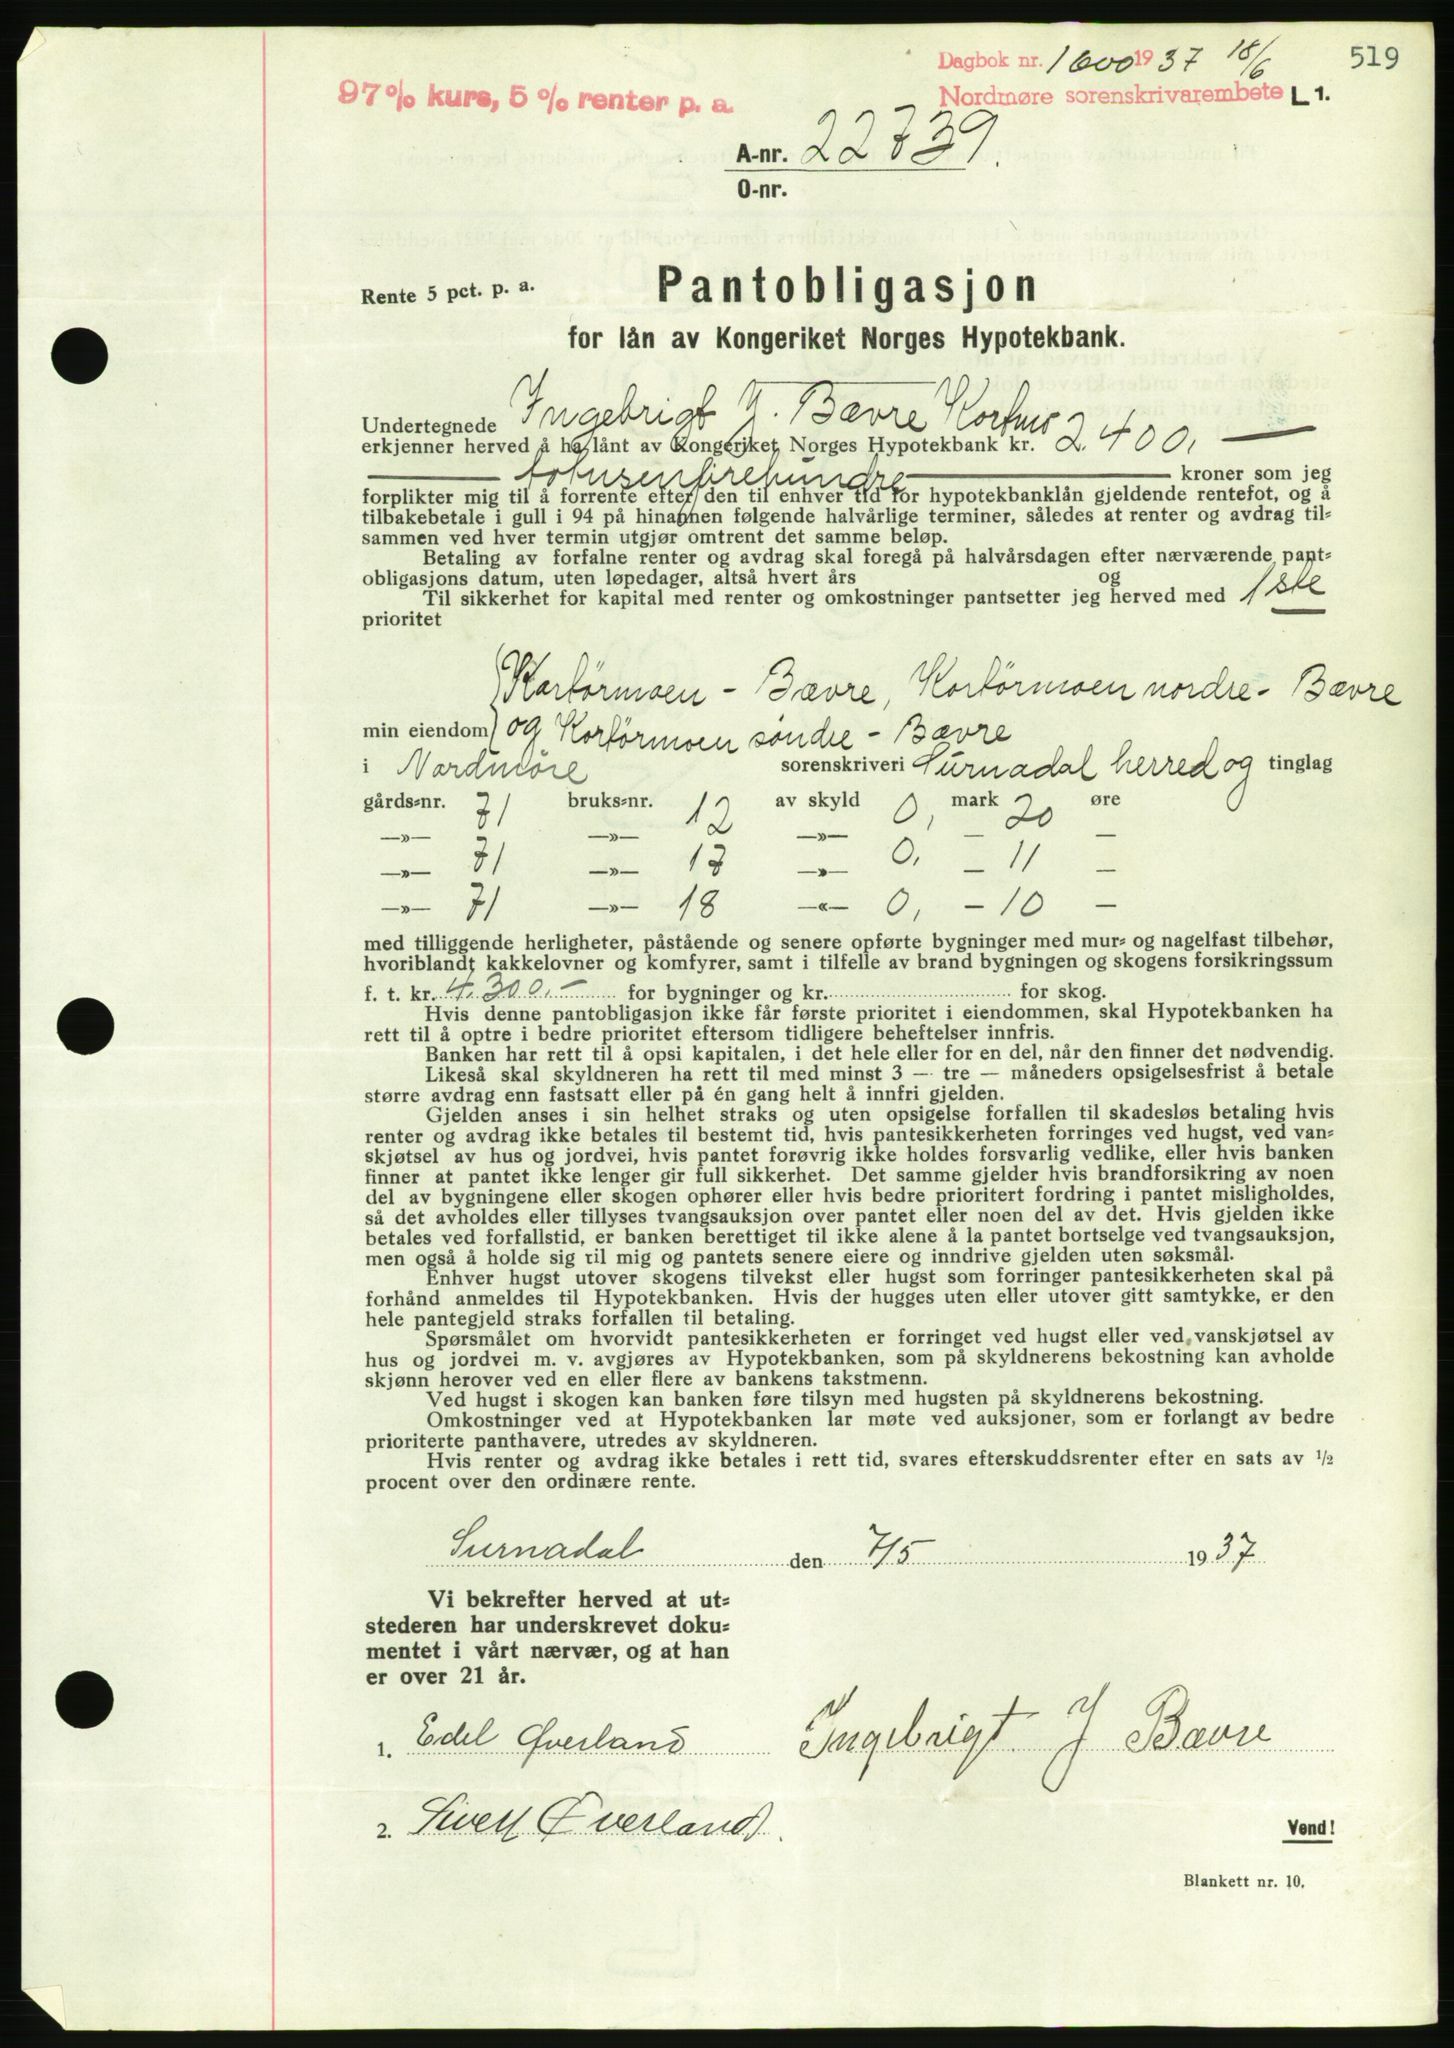 519
Dagbok nr. 1600 1937 18/6
97% kurs, 5% renter p. a.
Nordmøre sorenskrivarembete L 1.
A-nr. 22739.
O-nr.
Rente 5 pct. p. a.
Pantobligasjon
for lån av Kongeriket Norges Hypotekbank.
Undertegnede Ingebrigt J. Bævre
erkjenner herved å ha lånt av Kongeriket Norges Hypotekbank kr. 2.400,—
totusenfirehundre kroner som jeg
forplikter mig til å forrente efter den til enhver tid for hypotekbanklån gjeldende rentefot, og å
tilbakebetale i gull i 94 på hinannen følgende halvårlige terminer, således at renter og avdrag til-
sammen ved hver termin utgjør omtrent det samme beløp.
Betaling av forfalne renter og avdrag skal foregå på halvårsdagen efter nærværende pant-
obligasjons datum, uten løpedager, altså hvert års og
Til sikkerhet for kapital med renter og omkostninger pantsetter jeg herved med 1ste
prioritet
Kortörmoen - Bævre, Kortörmoen nordre - Bævre
min eiendom og Kortörmoen söndre - Bævre
i Nordmöre sorenskriveri Surnadal herred og tinglag
gårds-nr. 71 bruks-nr. 12 av skyld 0, mark 20 øre
—»— 71 —»— 17 —»— 0, — 11 —
—»— 71 —»— 18 —«— 0, — 10 —
med tilliggende herligheter, påstående og senere opførte bygninger med mur- og nagelfast tilbehør,
hvoriblandt kakkelovner og komfyrer, samt i tilfelle av brand bygningen og skogens forsikringssum
f. t. kr. 4.300.— for bygninger og kr. for skog.
Hvis denne pantobligasjon ikke får første prioritet i eiendommen, skal Hypotekbanken ha
rett til å optre i bedre prioritet eftersom tidligere beheftelser innfris.
Banken har rett til å opsi kapitalen, i det hele eller for en del, når den finner det nødvendig.
Likeså skal skyldneren ha rett til med minst 3 — tre — måneders opsigelsesfrist å betale
større avdrag enn fastsatt eller på én gang helt å innfri gjelden.
Gjelden anses i sin helhet straks og uten opsigelse forfallen til skadesløs betaling hvis
renter og avdrag ikke betales til bestemt tid, hvis pantesikkerheten forringes ved hugst, ved van-
skjøtsel av hus og jordvei, hvis pantet forøvrig ikke holdes forsvarlig vedlike, eller hvis banken
finner at pantet ikke lenger gir full sikkerhet. Det samme gjelder hvis brandforsikring av noen
del av bygningene eller skogen ophører eller hvis bedre prioritert fordring i pantet misligholdes,
så det avholdes eller tillyses tvangsauksjon over pantet eller noen del av det. Hvis gjelden ikke
betales ved forfallstid, er banken berettiget til ikke alene å la pantet bortselge ved tvangsauksjon,
men også å holde sig til mig og pantets senere eiere og inndrive gjelden uten søksmål.
Enhver hugst utover skogens tilvekst eller hugst som forringer pantesikkerheten skal på
forhånd anmeldes til Hypotekbanken. Hvis der hugges uten eller utover gitt samtykke, er den
hele pantegjeld straks forfallen til betaling.
Spørsmålet om hvorvidt pantesikkerheten er forringet ved hugst eller ved vanskjøtsel av
hus og jordvei m. v. avgjøres av Hypotekbanken, som på skyldnerens bekostning kan avholde
skjønn herover ved en eller flere av bankens takstmenn.
Ved hugst i skogen kan banken føre tilsyn med hugsten på skyldnerens bekostning.
Omkostninger ved at Hypotekbanken lar møte ved auksjoner, som er forlangt av bedre
prioriterte panthavere, utredes av skyldneren.
Hvis renter og avdrag ikke betales i rett tid, svares efterskuddsrenter efter en sats av ½
procent over den ordinære rente.
Surnadal den 7/5 1937
Vi bekrefter herved at ut-
stederen har underskrevet doku-
mentet i vårt nærvær, og at han
er over 21 år.
1. Edel Øverland Ingebrigt J Bævre
2. Sivert Øverland.
Vend!
Blankett nr. 10.